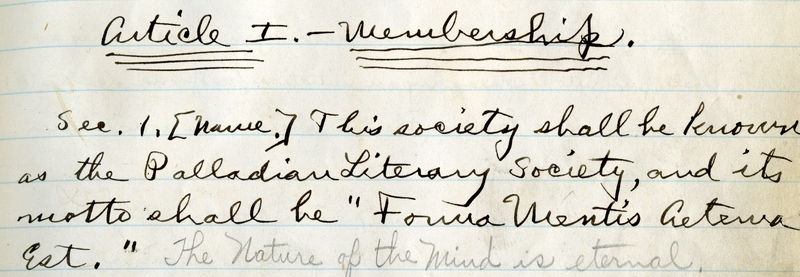 Article I. - Membership.
Sec. 1. [Name.] This society shall be known
as the Palladian Literary Society, and its
motto shall be "Forma Mentis Aeterna
Est." The Nature of the Mind is eternal.